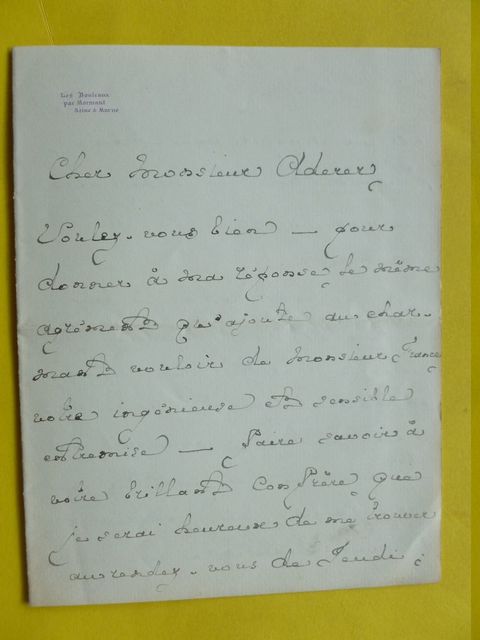 Les Bouleaux
par Mormant
Seine & Marne
Cher Monsieur Aderer,
Voulez-vous bien — pour
donner à ma réponse le même
agrément qu'ajoute au char-
mant vouloir de Monsieur France
votre ingénieuse et sensible
entremise — faire savoir à
votre brillant confrère que
je serai heureux de me trouver
au rendez-vous de Jeudi ;